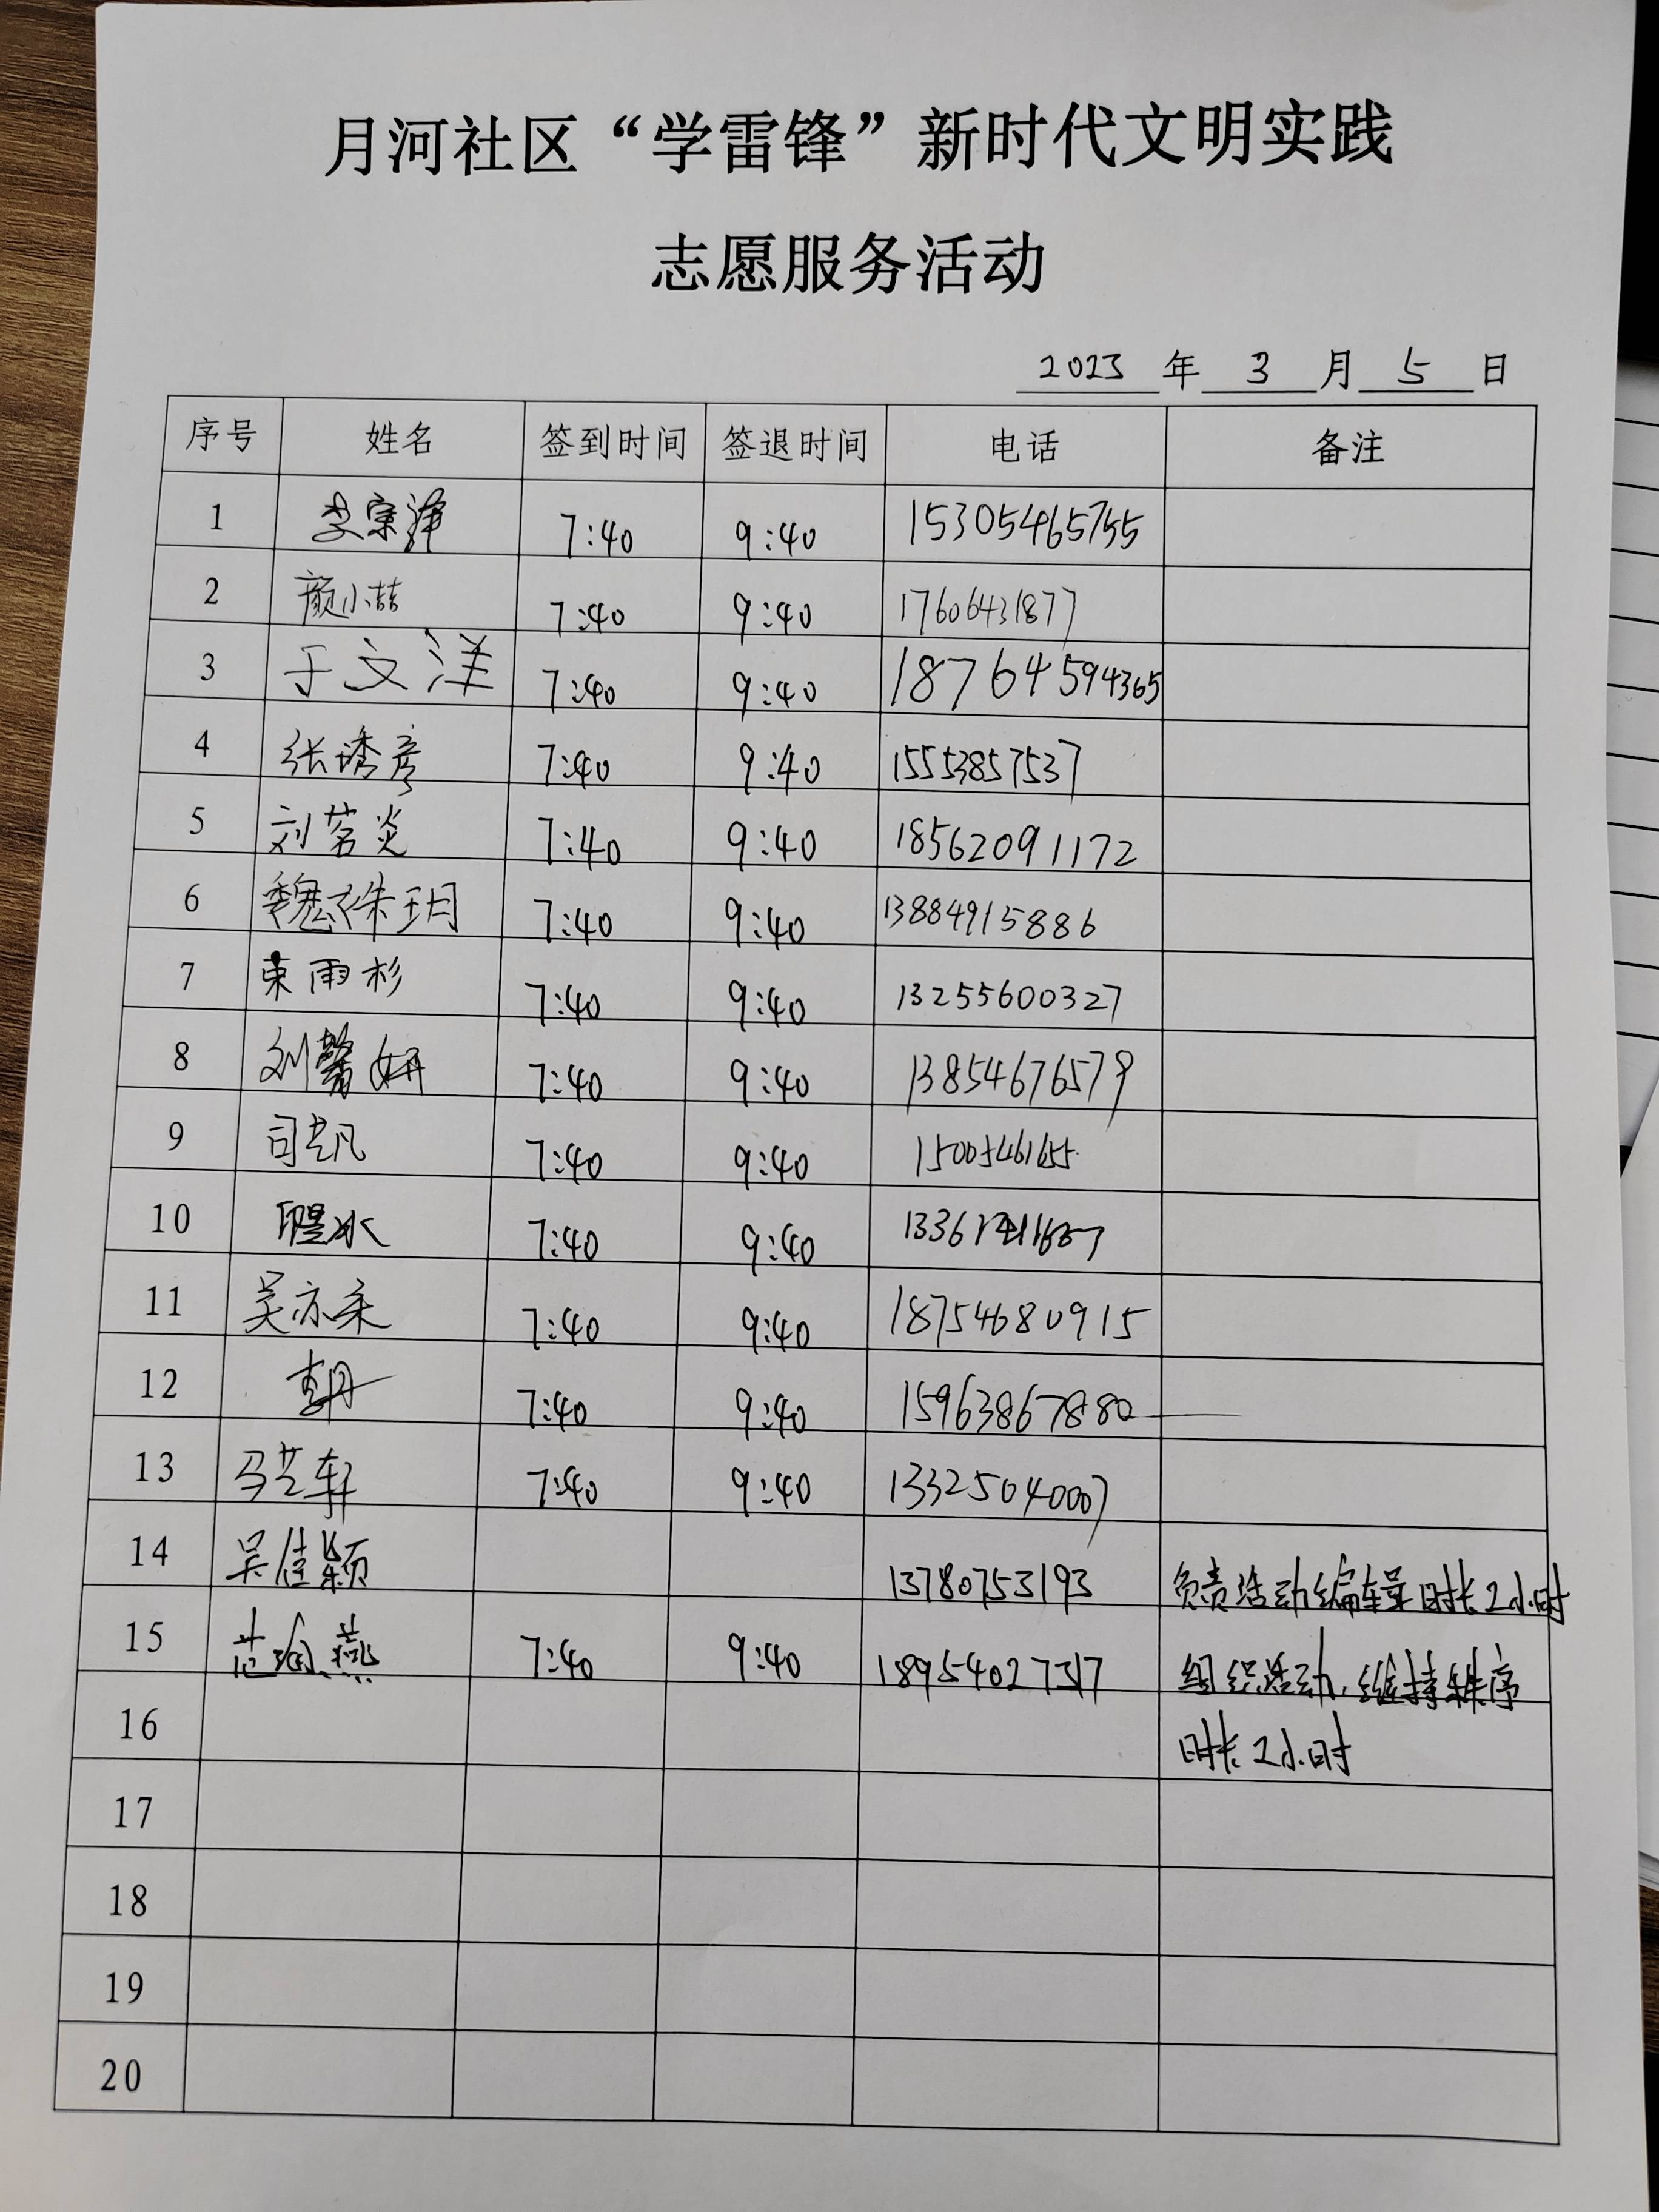 月河社区“学雷锋”新时代文明实践
志愿服务活动
2023 年 3 月 5 日
序号 姓名 签到时间 签退时间 电话 备注
1 李宗泽 7:40 9:40 15305465755
2 颜小喆 7:40 9:40 17606431877
3 于文洋 7:40 9:40 18764594365
4 张琇彦 7:40 9:40 15553857537
5 刘茗炎 7:40 9:40 18562091172
6 魏姝玥 7:40 9:40 13884915886
7 束雨杉 7:40 9:40 13255600327
8 刘馨妍 7:40 9:40 13854676579
9 司艺凡 7:40 9:40 15005461655
10 7:40 9:40
11 吴亦柔 7:40 9:40 18754680915
12 7:40 9:40 15963867880
13 马艺轩 7:40 9:40 13325040007
14 吴佳颖 13780753193 负责活动编辑 时长2小时
15 范海燕 7:40 9:40 18954027317 组织活动、维持秩序
16 时长2小时
17
18
19
20